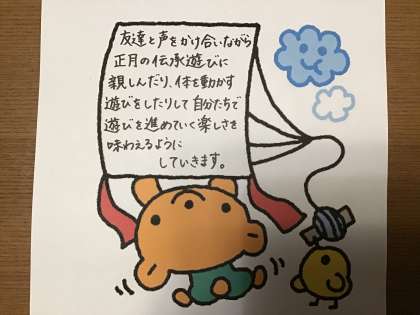 友達と声をかけ合いながら
正月の伝承遊びに
親しんだり、体を動かす
遊びをしたりして自分たちで
遊びを進めていく楽しさを
味わえるように
していきます。